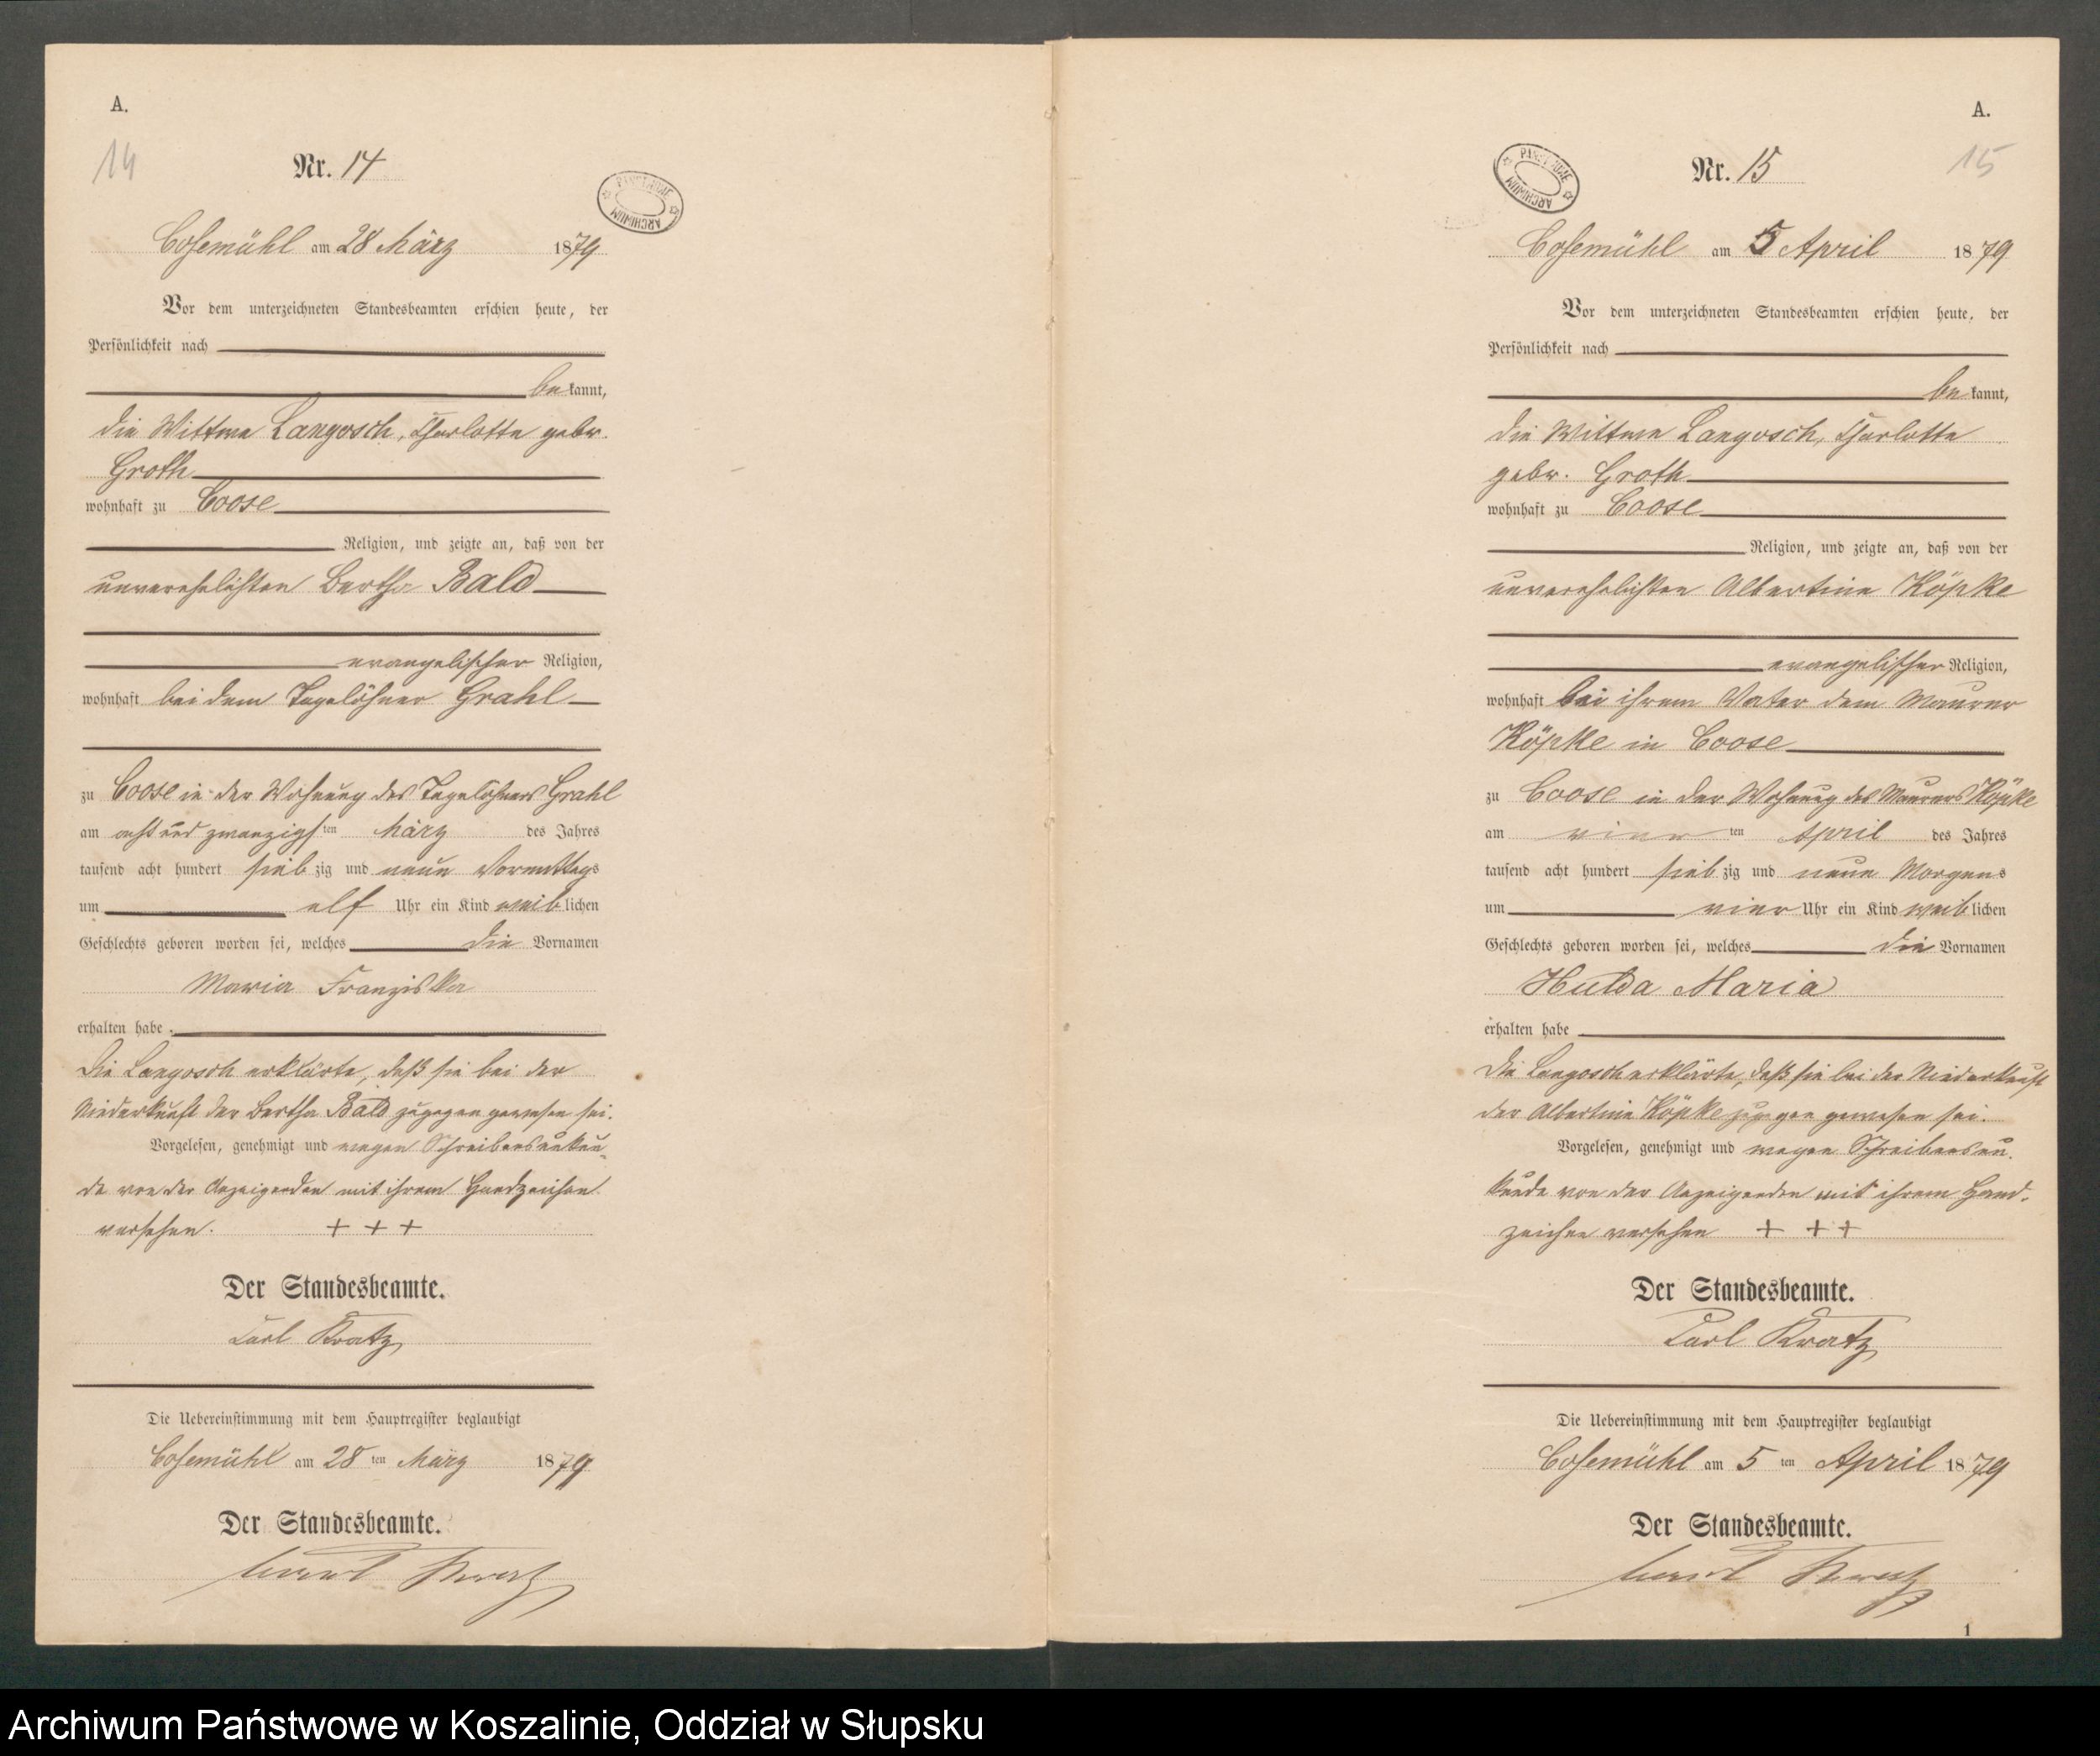 A.
14
Nr. 14
PAŃSTWOWE ARCHIWUM
Cosemühl am 28 März 1879
Vor dem unterzeichneten Standesbeamten erschien heute, der
Persönlichkeit nach
bekannt,
die Wittwe Langosch, Charlotte gebor.
Groth
wohnhaft zu Coose
Religion, und zeigte an, daß von der
unverehelichten Bertha Bald
evangelischer Religion,
wohnhaft bei dem Tagelöhner Grahl
zu Coose in der Wohnung des Tagelöhners Grahl
am acht und zwanzigsten März des Jahres
tausend acht hundert siebzig und neun Vormittags
um elf Uhr ein Kind weiblichen
Geschlechts geboren worden sei, welches die Vornamen
Maria Franziska
erhalten habe.
Die Langosch erklärte, daß sie bei der
Niederkunft der Bertha Bald zugegen gewesen sei.
Vorgelesen, genehmigt und wegen Schreibensunkun-
de von der Anzeigenden mit ihrem Handzeichen
versehen. + + +
Der Standesbeamte.
Carl Kratz
Die Uebereinstimmung mit dem Hauptregister beglaubigt
Cosemühl am 28 ten März 1879
Der Standesbeamte.
Carl Kratz
A.
15
Nr. 15
PAŃSTWOWE ARCHIWUM
Cosemühl am 5 April 1879
Vor dem unterzeichneten Standesbeamten erschien heute, der
Persönlichkeit nach
bekannt,
die Wittwe Langosch, Charlotte
gebor. Groth
wohnhaft zu Coose
Religion, und zeigte an, daß von der
unverehelichten Albertine Köpke
evangelischer Religion,
wohnhaft bei ihrem Vater dem Maurer
Köpke in Coose
zu Coose in der Wohnung des Maurers Köpke
am vier ten April des Jahres
tausend acht hundert siebzig und neun Morgens
um vier Uhr ein Kind weiblichen
Geschlechts geboren worden sei, welches die Vornamen
Hulda Maria
erhalten habe
Die Langosch erklärte, daß sie bei der Niederkunft
der Albertine Köpke zugegen gewesen sei.
Vorgelesen, genehmigt und wegen Schreibensun-
kunde von der Anzeigenden mit ihrem Hand-
zeichen versehen + + +
Der Standesbeamte.
Carl Kratz
Die Uebereinstimmung mit dem Hauptregister beglaubigt
Cosemühl am 5 ten April 1879
Der Standesbeamte.
Carl Kratz
1
Archiwum Państwowe w Koszalinie, Oddział w Słupsku